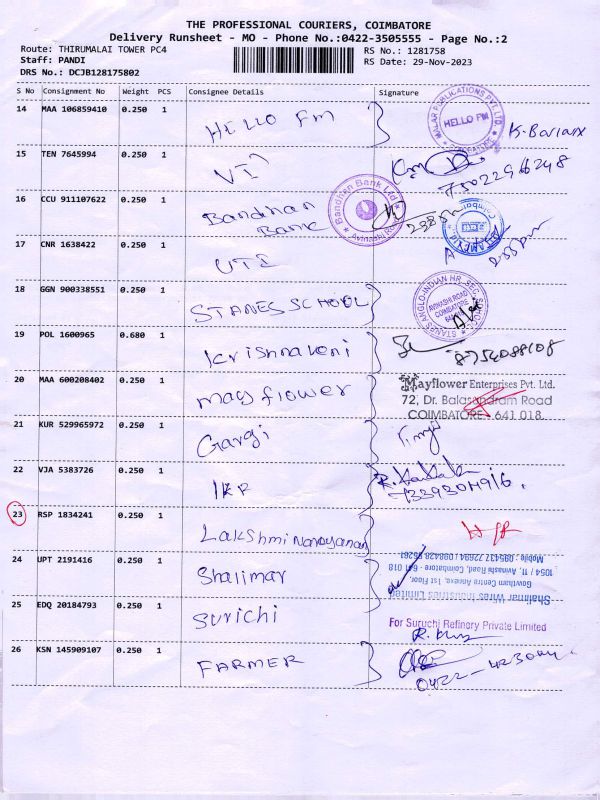 THE PROFESSIONAL COURIERS, COIMBATORE
Delivery Runsheet - MO - Phone No.:0422-3505555 - Page No.:2
Route: THIRUMALAI TOWER PC4 RS No.: 1281758
Staff: PANDI RS Date: 29-Nov-2023
DRS No.: DCJB128175802
S No Consignment No Weight PCS Consignee Details Signature
14 MAA 106859410 0.250 1 HELLO FM
MALAR PUBLICATIONS PVT. LTD. HELLO FM
15 TEN 7645994 0.250 1 VI
16 CCU 911107622 0.250 1 Bandhan
Bank
Bandhan Bank Ltd
17 CNR 1638422 0.250 1 UTI
18 GGN 900338551 0.250 1 STANES SCHOOL
STANES ANGLO-INDIAN HR. SEC. SCHOOL
AVINASHI ROAD
COIMBATORE
19 POL 1600965 0.680 1 Krishnaveni
20 MAA 600208402 0.250 1 mayflower
Mayflower Enterprises Pvt. Ltd.
72, Dr. Balasundram Road
COIMBATORE - 641 018.
21 KUR 529965972 0.250 1 Gargi
22 VJA 5383726 0.250 1 IKR
23 RSP 1834241 0.250 1 Lakshmi Narayanan
24 UPT 2191416 0.250 1 Shalimar
Shalimar Wires Industries Limited
Gowtham Centre Annexe, 1st Floor,
1054 / 11, Avinashi Road, Coimbatore - 641 018
25 EDQ 20184793 0.250 1 Surichi
For Suruchi Refinery Private Limited
26 KSN 145909107 0.250 1 FARMER